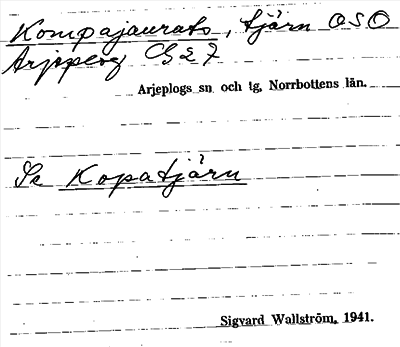 Kompajaurats, tjärn OSO
Arjeplog G27
Arjeplogs sn och tg, Norrbottens län.
Se Kopatjärn
Sigvard Wallström, 1941.